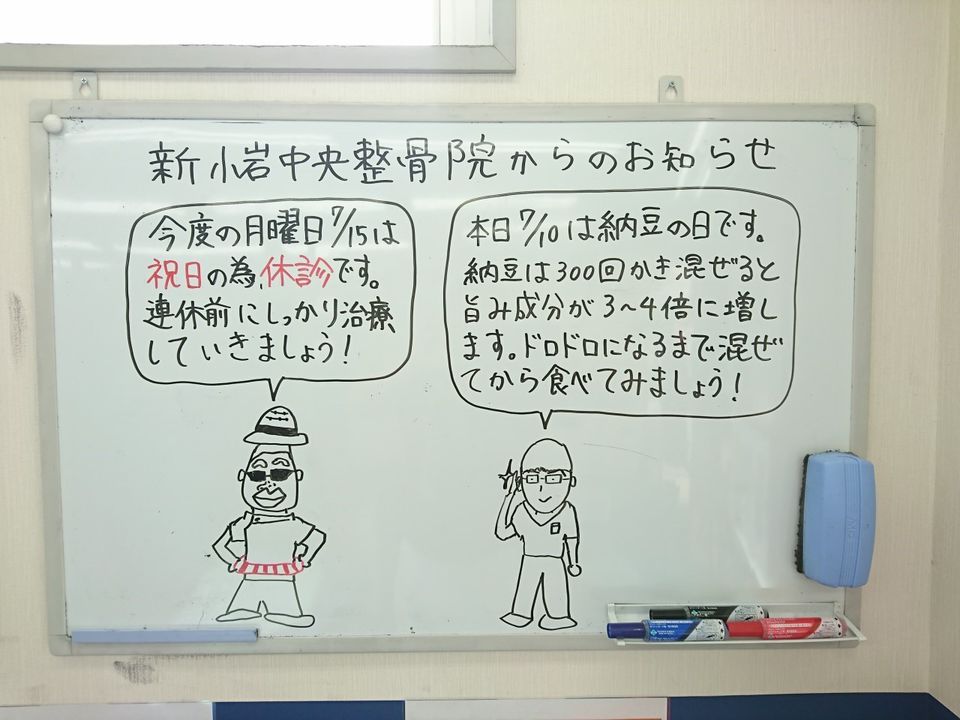 新小岩中央整骨院からのお知らせ
今度の月曜日7/15は
祝日の為、休診です。
連休前にしっかり治療
していきましょう!
本日7/10は納豆の日です。
納豆は300回かき混ぜると
旨み成分が3~4倍に増し
ます。ドロドロになるまで混ぜ
てから食べてみましょう!